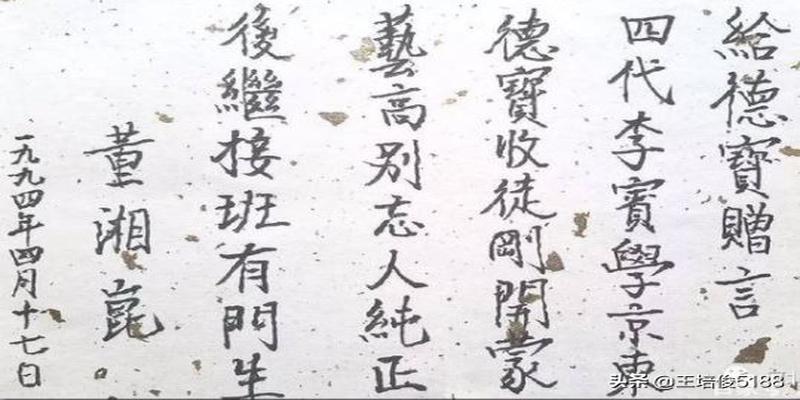 給德寶贈言
四代李賓學京東
德寶收徒剛開蒙
藝高別忘人純正
後繼接班有門生
董湘崑
一九九四年四月十七日
头条 @王培俊5188